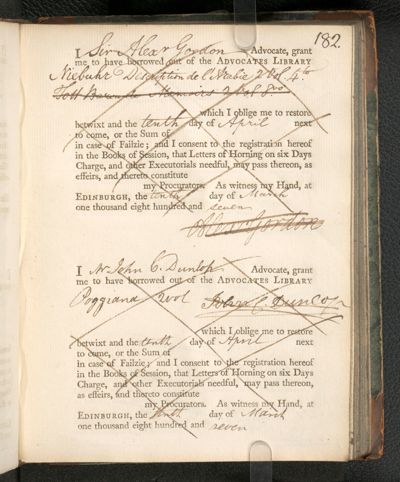 182.
I Sir Alexr Gordon Advocate, grant
me to have borrowed out of the ADVOCATES LIBRARY
Niebuhr Description de l'Arabie 2 vol. 4to
Memoirs 2 vol 8vo
which I oblige me to restore
betwixt and the tenth day of April next
to come, or the Sum of
in case of Failzie; and I consent to the registration hereof
in the Books of Session, that Letters of Horning on six Days
Charge, and other Executorials needful, may pass thereon, as
effeirs, and thereto constitute
my Procurators. As witness my Hand, at
EDINBURGH, the tenth day of March
one thousand eight hundred and seven
Alexr Gordon
I Mr John C. Dunlop Advocate, grant
me to have borrowed out of the ADVOCATES LIBRARY
Poggiana 2 vol John C. Dunlop
which I oblige me to restore
betwixt and the tenth day of April next
to come, or the Sum of
in case of Failzie; and I consent to the registration hereof
in the Books of Session, that Letters of Horning on six Days
Charge, and other Executorials needful, may pass thereon,
as effeirs, and thereto constitute
my Procurators. As witness my Hand, at
EDINBURGH, the tenth day of March
one thousand eight hundred and seven